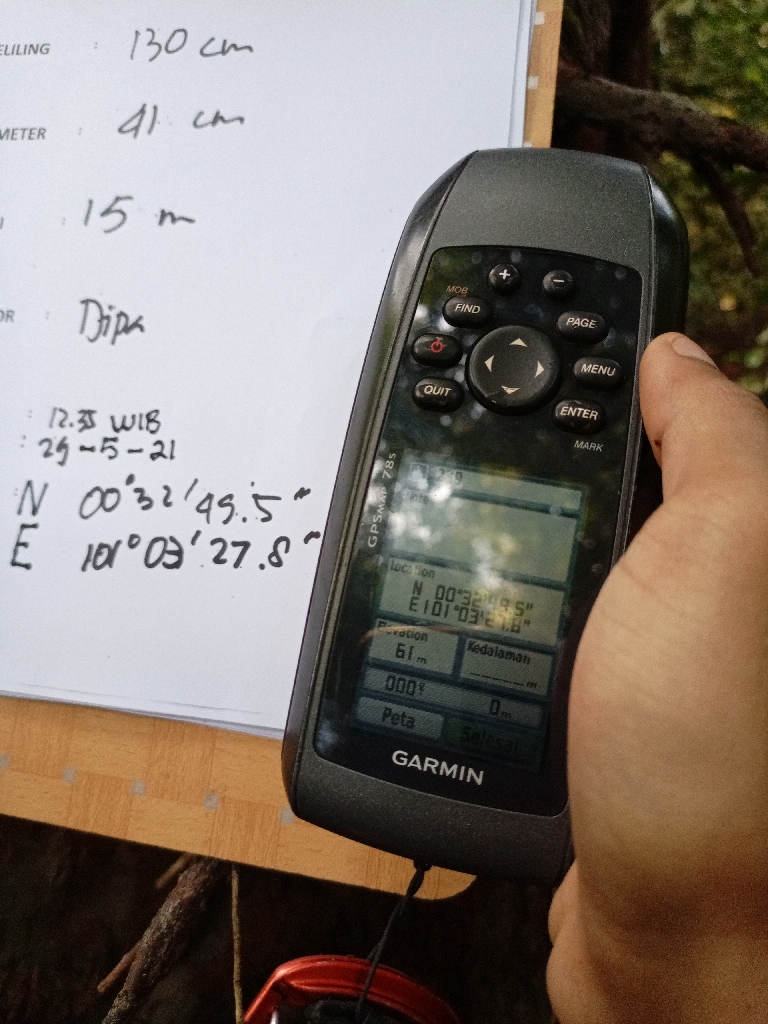 ELILING : 130 cm
METER : 41 cm
I : 15 m
OR : Dipa
: 12.35 WIB
: 29-5-21
: N 00°32'49.5"
E 101°03'27.8"
+ -
MOB
FIND PAGE
MENU
QUIT ENTER
MARK
GPSMAP 78s
Location
N 00°32'49.5"
E101°03'27.8"
Elevation Kedalaman
61m ______m
000°T 0m
Peta Selesai
GARMIN